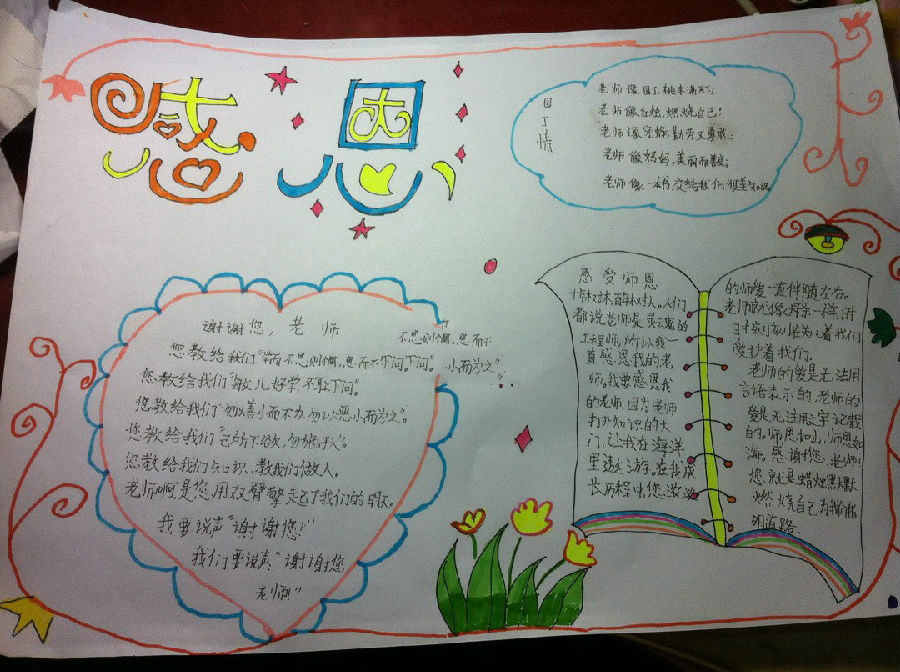 感恩
园丁情
老师像园丁,桃李满天下;
老师像蜡烛,燃烧自己;
老师像蜜蜂,勤劳又勇敢;
老师像妈妈,美丽而善良;
老师像一本书,交给我们
谢谢您,老师
不思则惘,思而不
您教给我们"学而不思则惘,思而不下问。下问"。小而为之"。
您教给我们"敏儿好学不耻下问"。
您教给我们"勿以善小而不为,勿以恶小而为之"。
您教给我们"己所不欲,勿施于人"。
您教给我们知识,教我们做人。
老师啊是您用双臂擎起了我们的明天。
我要说声"谢谢您!"
我们要说声"谢谢您
老师!"
感受师恩
十年树木百年树人,人们
都说老师是灵魂的
工程师,所以我一
直感恩我的老
师。我要感恩我
的老师,因为老师
打开知识的大
门,让我在海洋
里遨游。在其成
长历程中您
的师爱一直伴随左右。
老师就像妈妈一样,时
时刻刻为着我们
爱护着我们。
老师的爱是无法用
言语表示的,老师的
爱是无法用文字记载
的。师恩如山,师恩如
海。感谢您,老师!
您就是蜡烛默默
燃烧自己,为我们照
明道路。